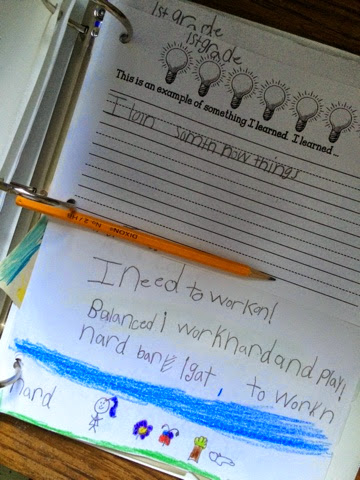 1st grade
1st grade
This is an example of something I learned. I learned...
I larn somtn now things
DIXON No. 2 / HB
I need to work on!
Balanced i work hard and play!
hard I gat, to work n
hard